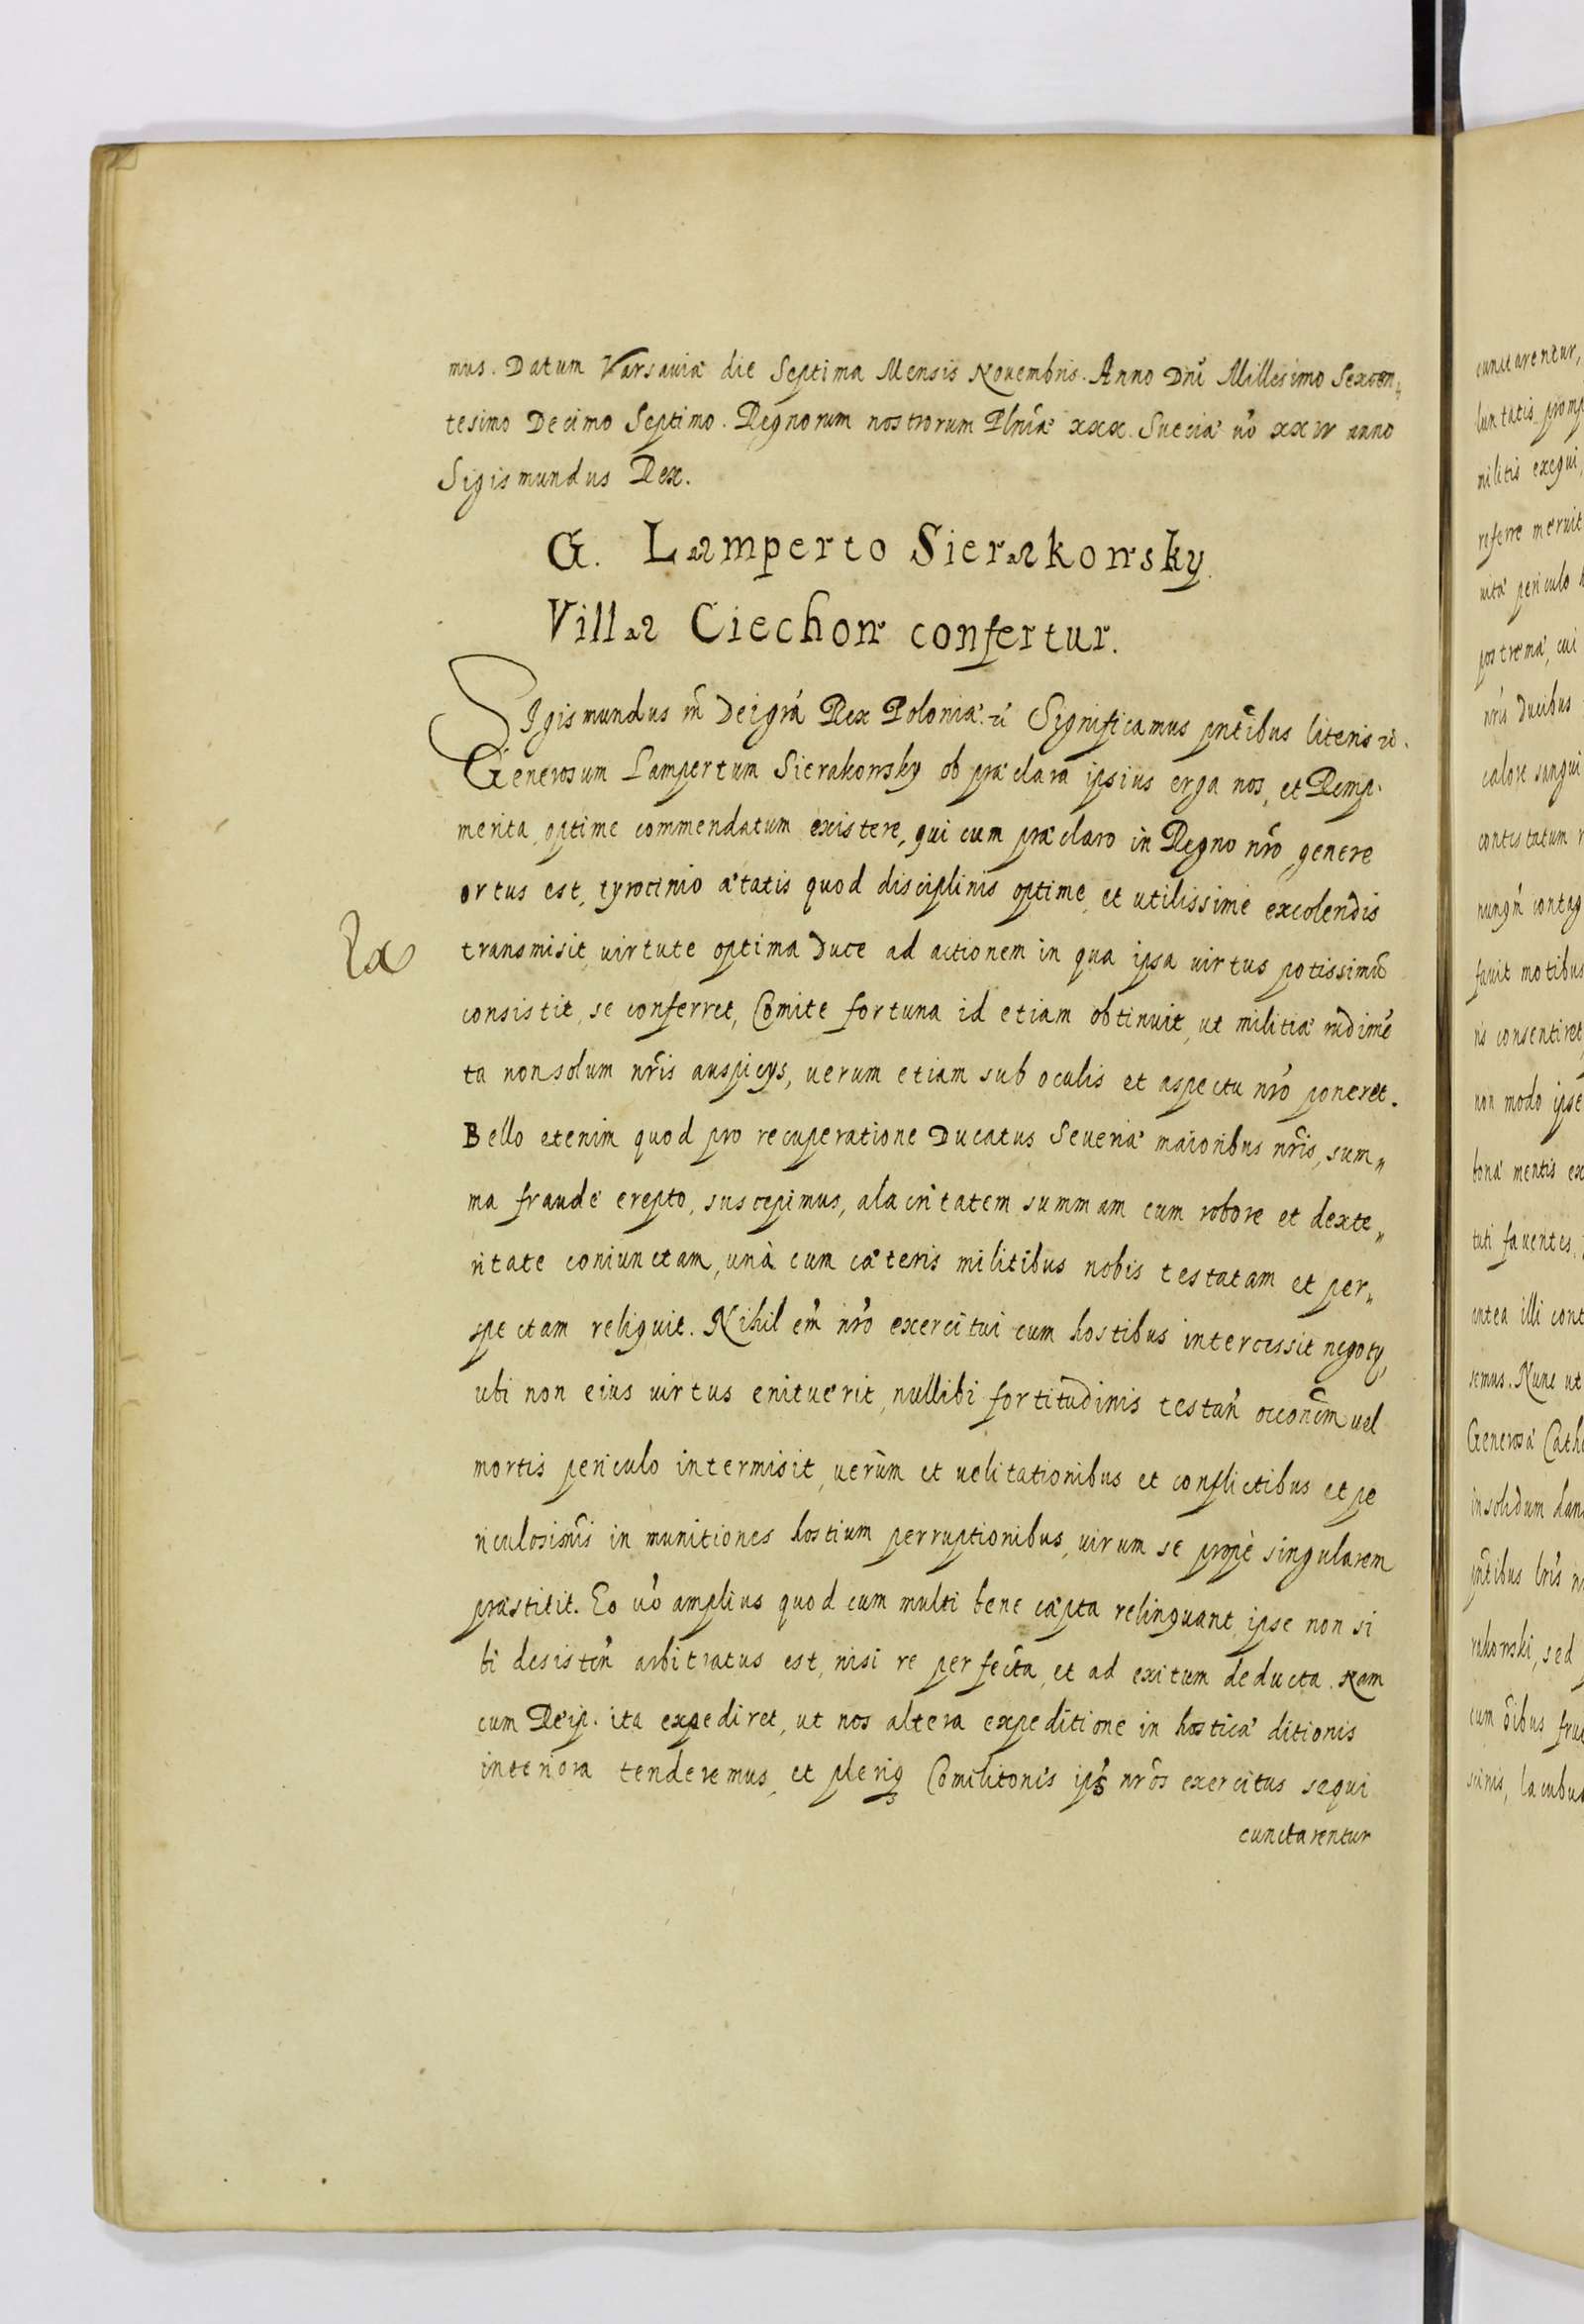 mus. Datum Varsauiæ die Septima Mensis Nouembris. Anno Dnĩ Millesimo Sexcen„
tesimo Decimo Septimo. Regnorum nostrorum Plniæ xxx. Sueciæ uo xxiv anno
Sigismundus Rex.
G. Lamperto Sierakowsky
Villa Ciechow confertur.
Sigismundus iii Dei gra Rex Poloniæ. Significamus pntibus literis
Generosum Lampertum Sierakowsky ob præclara ipsius erga nos, et Remp.
merita, optime commendatum existere, qui cum præclaro in Regno nro genere
ortus est, tyrocinio ætatis quod disciplinis optime, et utilissime excolendis
Ex
transmisit, uirtute optima Duce ad actionem in qua ipsa uirtus potissimũ
consistit, se conferret, Comite fortuna id etiam obtinuit, ut militiæ rudimẽ
ta non solum nris auspicys, uerum etiam sub oculis et aspectu nro poneret.
Bello etenim quod pro recuperatione Ducatus Seueriæ maioribus nris, sum„
ma fraude erepto, suscepimus, alacritatem summam cum robore et dexte„
ritate coniunctam, unà cum cæteris militibus nobis testatam et per„
spectam reliquit. Nihil em nro exercitui cum hostibus intercessit negoty,
ubi non eius uirtus enituerit, nullibi fortitudinis testan occonem uel
mortis periculo intermisit, uerùm et uelitationibus et conflictibus et pe
riculosimis in munitiones hostium perruptionibus, uirum se prope singularem
præstitit. Eo uo amplius quod cum multi bene cæpta relinquant, ipse non si
bi desisten arbitratus est, nisi re perfecta, et ad exitum deducta. Nam
cum Reip. ita expediret, ut nos altera expeditione in hosticæ ditionis
interiora tenderemus, et pleriq Comilitones ips nros exercitus sequi
cunctarentur
cunctarentur,
luntatis promp
militis exequi,
referre meruit
uitæ periculo
postrema, cui
nris Ducibus
calore sangui
contestatum
nunqm contag
fauit motibus
ris consentiret,
non modo ipse
bonæ mentis ex
tuti fauentes,
antea illi cont
semus. Nunc ut
Generosæ Cath
in solidum han
pntibus lris
rakowski, sed
cum oibus fruc
scinis, lacubus